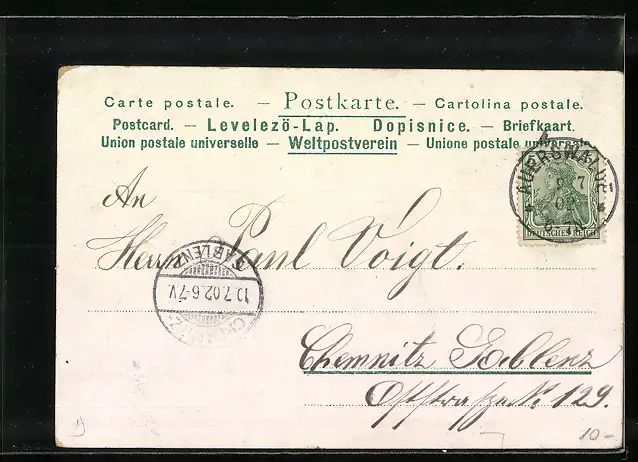 Carte postale. — Postkarte. — Cartolina postale.
Postcard. — Levelezö-Lap. Dopisnice. — Briefkaart.
Union postale universelle — Weltpostverein — Unione postale universale
AUERSWALDE
9 7
02
6-7N
DEUTSCHES REICH
An
Herrn Paul Voigt.
GABLENZ
10.7.02.6-7V.
CHEMNITZ
Chemnitz Gablenz
Oststrasse No. 129.
10-